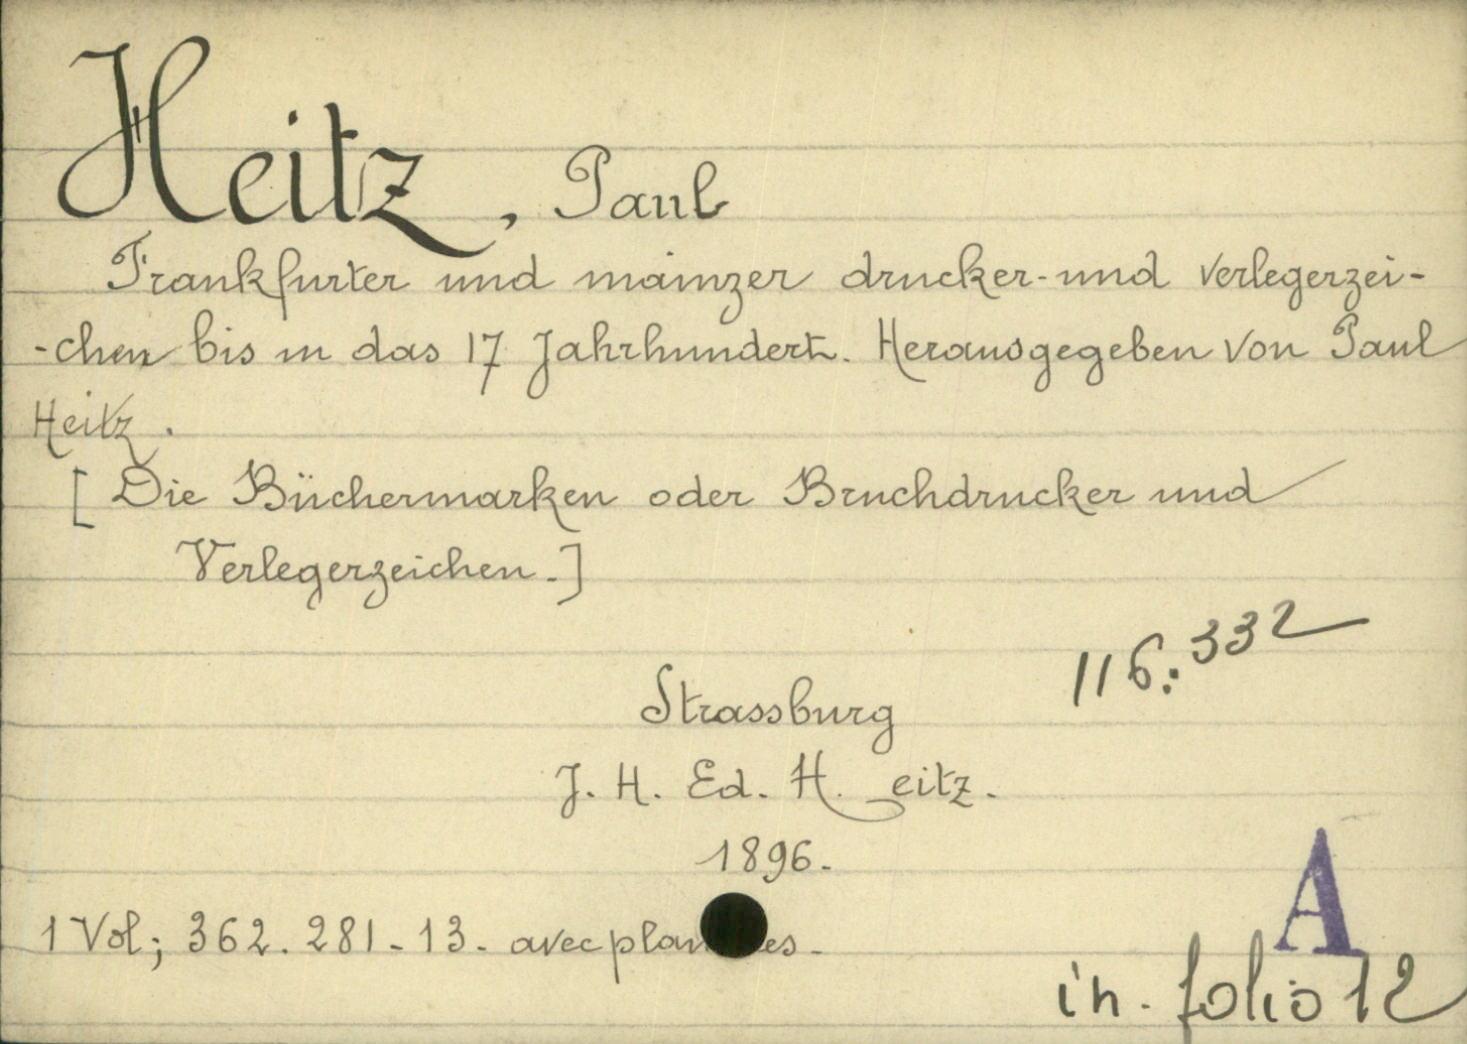 Heitz, Paul
Frankfurter und mainzer drucker-und Verlegerzei-
-chen bis in das 17 Jahrhundert. Herausgegeben von Paul
Heitz.
[Die Büchermarken oder Bruchdrucker und
Verlegerzeichen.]
116.332
Strassburg
J. H. Ed. H. eitz.
1896.
1 Vol; 362. 281-13. avec
A
in-folio 12